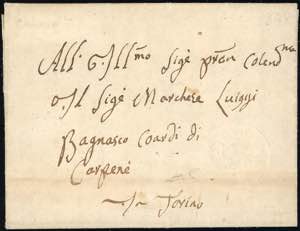 All' Ill.mo Sig.e Pron Colend.mo
Il Sig.e Marchese Luiggi
Bagnasco Coardi di
Carpené
Torino